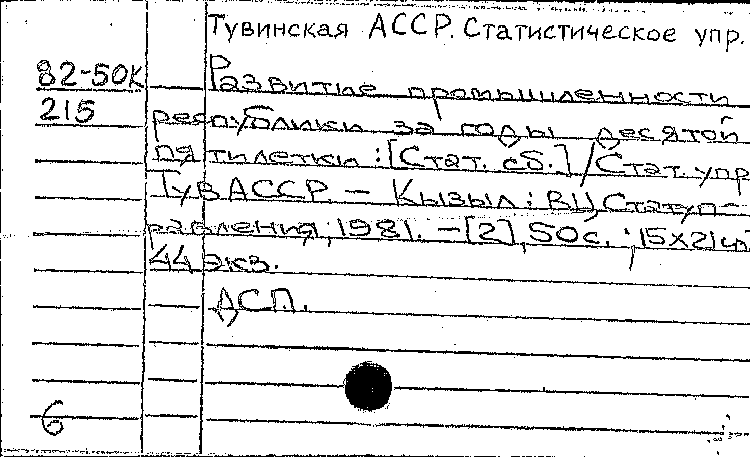 Тувинская АССР. Статистическое упр.
82-50К Развитие промышленности
215 республики за годы десятой
пятилетки: [Стат. сб.] / Стат. упр
Тув АССР. — Кызыл: ВЦ Статуп-
равления, 1981. — [2], 50с.; 15х21см
44 экз.
ДСП.
6